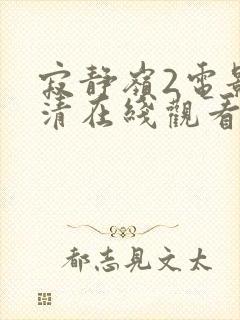 寂靜嶺2電影
清在綫觀看
都志見文太